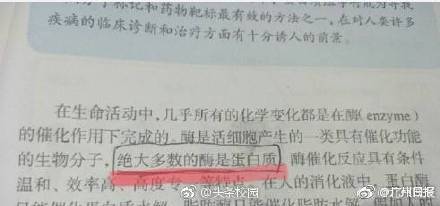 标记和药物靶标最有效的方法之一,在对人类许多
疾病的临床诊断和治疗方面有十分诱人的前景。
在生命活动中,几乎所有的化学变化都是在酶(enzyme)
的催化作用下完成的。酶是活细胞产生的一类具有催化功能
的生物分子,绝大多数的酶是蛋白质。酶催化反应具有条件
温和、效率高、高度专一等特点。在人的消化液中,蛋白酶
@头条校园
@广州日报